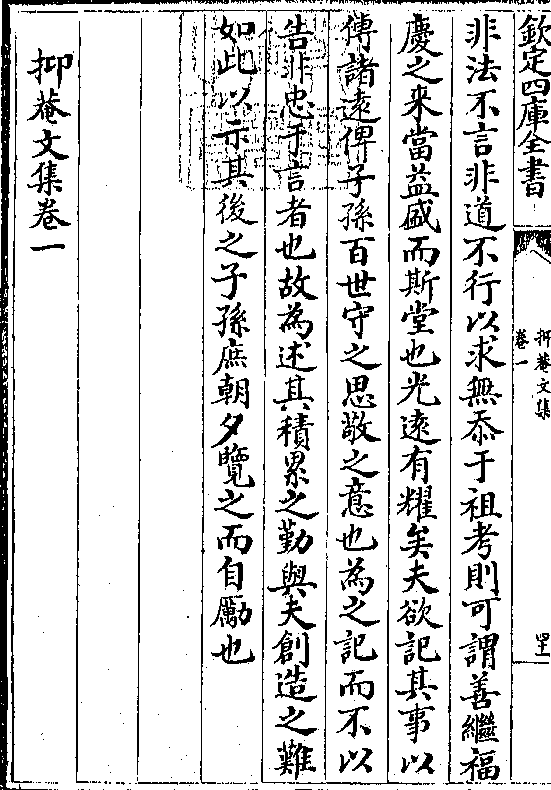 欽定四庫全書
抑菴文集
卷一
非法不言非道不行以求無忝于祖考則可謂善繼福
慶之来當益盛而斯堂也光遠有耀矣夫欲記其事以
傳諸遠俾子孫百世守之思敬之意也為之記而不以
告非忠于言者也故為述其積累之勤與夫創造之難
如此以示其後之子孫庶朝夕覽之而自勵也
抑菴文集卷一